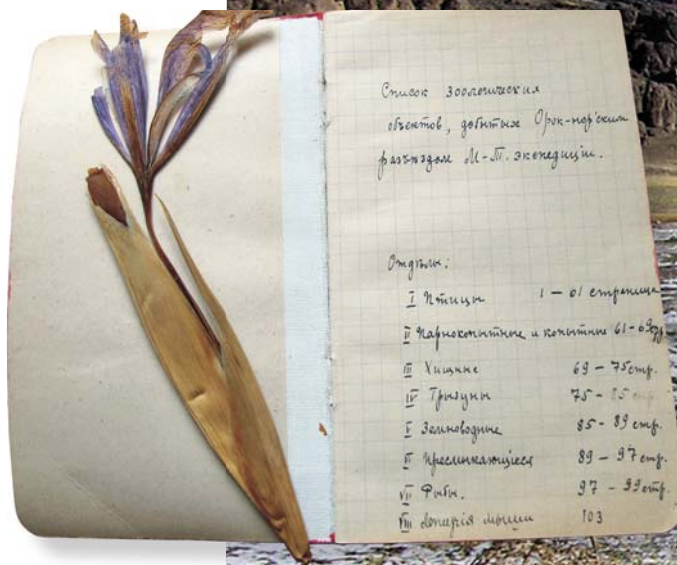 Список зоологических
объектов, добытых Орок-нор'ским
разъѣздом М-Т. экспедиціи.
Отдѣлы:
I Птицы 1 – 61 страница
II Парнокопытные и копытные 61 – 69
III Хищные 69 – 75 стр.
IV Грызуны 75 – 85 стр.
V Земноводные 85 – 89 стр.
VI Пресмыкающіеся 89 – 97 стр.
VII Рыбы. 97 – 99 стр.
VIII Летучія мыши 103